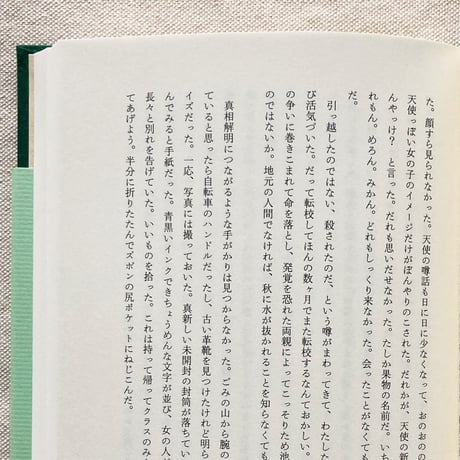 た。顔すら見られなかった。天使の噂話も日に日に少なくなって、おのおのの
天使っぽい女の子のイメージだけがぼんやりのこされた。だれかが、天使の新
んやっけ？　と言った。だれも思いだせなかった。たしか果物の名前だ。いち
れもん。めろん。みかん。どれもしっくり来なかった。会ったことがなくても
だ。
引っ越したのではない、殺されたのだ、という噂がまわってきて、わたした
び活気づいた。だって転校してほんの数ヶ月でまた転校するなんておかしい。
の争いに巻きこまれて命を落とし、発覚を恐れた両親によってこっそりため池
のではないか。地元の人間でなければ、秋に水が抜かれることを知らなくても
真相解明につながるような手がかりは見つからなかった。ごみの山から腕の
ていると思ったら自転車のハンドルだったし、古い革靴を見つけたけれど明ら
イズだった。一応、写真には撮っておいた。真新しい未開封の封筒が落ちてい
んでみると手紙だった。青黒いインクできちょうめんな文字が並び、女の人が
長々と別れを告げていた。いいものを拾った。これは持って帰ってクラスのみ
てあげよう。半分に折りたたんでズボンの尻ポケットにねじこんだ。